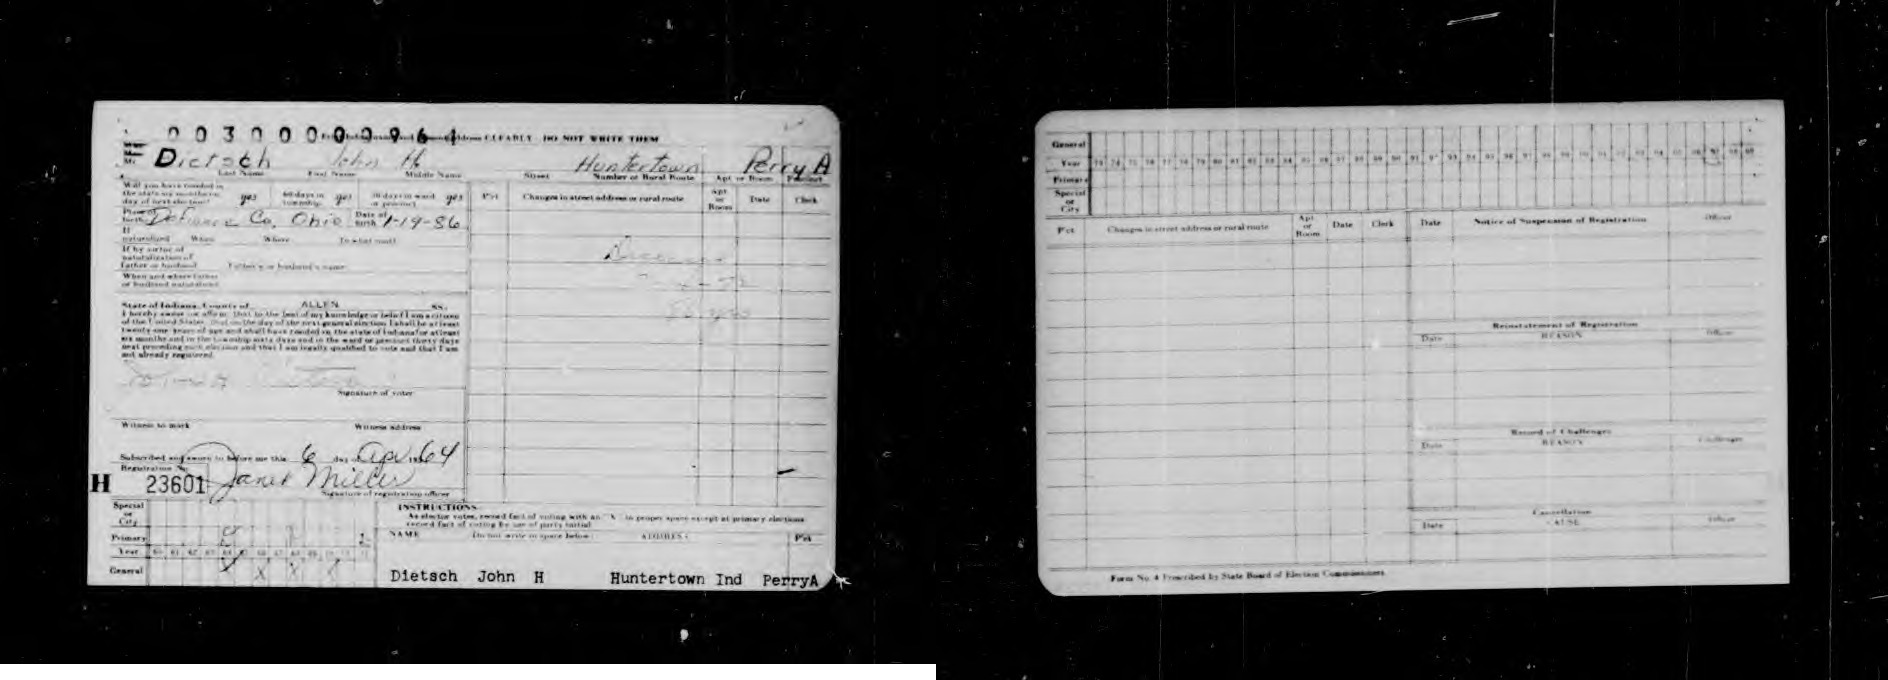 0030000964
CLEARLY - DO NOT WRITE THEM
Mr. Dietsch John H. Huntertown Perry A
Last Name First Name Middle Name Street Number or Rural Route Apt or Room Precinct
Will you have resided in
the state six months on
day of next election? yes 60 days in township yes 30 days in ward or precinct yes
P'ct Changes in street address or rural route Apt or Room Date Clerk
Place birth Defiance Co, Ohio Date of birth 1-19-86
If
naturalized When Where In what court
If by virtue of
naturalization of
father or husband Father's or husband's name
When and where father
or husband naturalized
88 yrs
State of Indiana, County of ALLEN SS.
I hereby swear (or affirm) that to the best of my knowledge or belief I am a citizen
of the United States, that on the day of the next general election I shall be at least
twenty-one years of age and shall have resided in the state of Indiana for at least
six months and in the township sixty days and in the ward or precinct thirty days
next preceding such election and that I am legally qualified to vote and that I am
not already registered.
Signature of voter
Witness to mark Witness address
Subscribed and sworn to before me this 6 day Apr 1964
Registration No.
H 23601 Janet Miller
Signature of registration officer
Special
or
City
Primary
Year 60 61 62 63 64 65 66 67 68 69 70 71
General X X X X
INSTRUCTIONS
As elector votes, record fact of voting with an "X" in proper space except at primary elections
record fact of voting by use of party initial
NAME (Do not write in space below) ADDRESS P'ct
Dietsch John H Huntertown Ind PerryA
General
Year
Primary
Special
or
City
P'ct Changes in street address or rural route Apt or Room Date Clerk
Date Notice of Suspension of Registration Officer
Reinstatement of Registration
Date REASON Officer
Record of Challenges
Date REASON Challenger
Cancellation
Date CAUSE Officer
Form No. 4 Prescribed by State Board of Election Commissioners